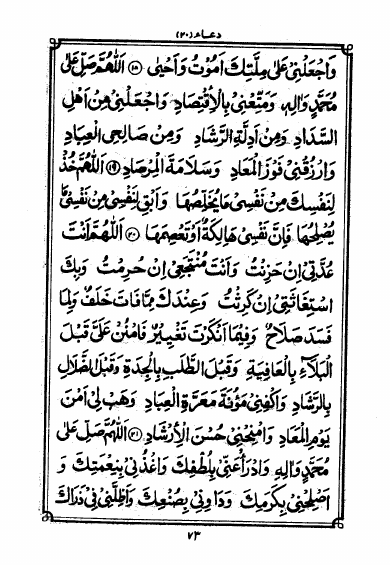 دعاء (۲۰)
وَاجْعَلْنِیْ عَلٰی مِلَّتِكَ اَمُوْتُ وَ اَحْیٰی ⑱ اَللّٰهُمَّ صَلِّ عَلٰی
مُحَمَّدٍ وَاٰلِهٖ وَمَتِّعْنِیْ بِالْاِقْتِصَادِ وَاجْعَلْنِیْ مِنْ اَهْلِ
السَّدَادِ وَمِنْ اَدِلَّةِ الرَّشَادِ وَمِنْ صَالِحِی الْعِبَادِ
وَارْزُقْنِیْ فَوْزَ الْمَعَادِ وَسَلَامَةَ الْمِرْصَادِ ⑲ اَللّٰهُمَّ خُذْ
لِنَفْسِكَ مِنْ نَفْسِیْ مَا یُخَلِّصُهَا وَاَبْقِ لِنَفْسِیْ مِنْ نَفْسِیْ مَا
یُصْلِحُهَا فَاِنَّ نَفْسِیْ هَالِكَةٌ اَوْ تَعْصِمَهَا ⑳ اَللّٰهُمَّ اَنْتَ
عُدَّتِیْ اِنْ حَزِنْتُ وَاَنْتَ مُنْتَجَعِیْ اِنْ حُرِمْتُ وَبِكَ
اسْتِغَاثَتِیْ اِنْ كَرِثْتُ وَعِنْدَكَ مِمَّا فَاتَ خَلَفٌ وَلِمَا
فَسَدَ صَلَاحٌ وَفِیْمَا اَنْكَرْتَ تَغْیِیْرٌ فَامْنُنْ عَلَیَّ قَبْلَ
الْبَلَآءِ بِالْعَافِیَةِ وَقَبْلَ الطَّلَبِ بِالْجِدَةِ وَقَبْلَ الضَّلَالِ
بِالرَّشَادِ وَاكْفِنِیْ مَؤُنَةَ مَعَرَّةِ الْعِبَادِ وَهَبْ لِیْ اَمْنَ
یَوْمِ الْمَعَادِ وَامْنِحْنِیْ حُسْنَ الْاِرْشَادِ ㉑ اَللّٰهُمَّ صَلِّ عَلٰی
مُحَمَّدٍ وَاٰلِهٖ وَادْرَأْ عَنِّیْ بِلُطْفِكَ وَاغْذُنِیْ بِنِعْمَتِكَ وَ
اَصْلِحْنِیْ بِكَرَمِكَ وَدَاوِنِیْ بِصُنْعِكَ وَاَظِلَّنِیْ فِیْ ذَرَاكَ
۷۳